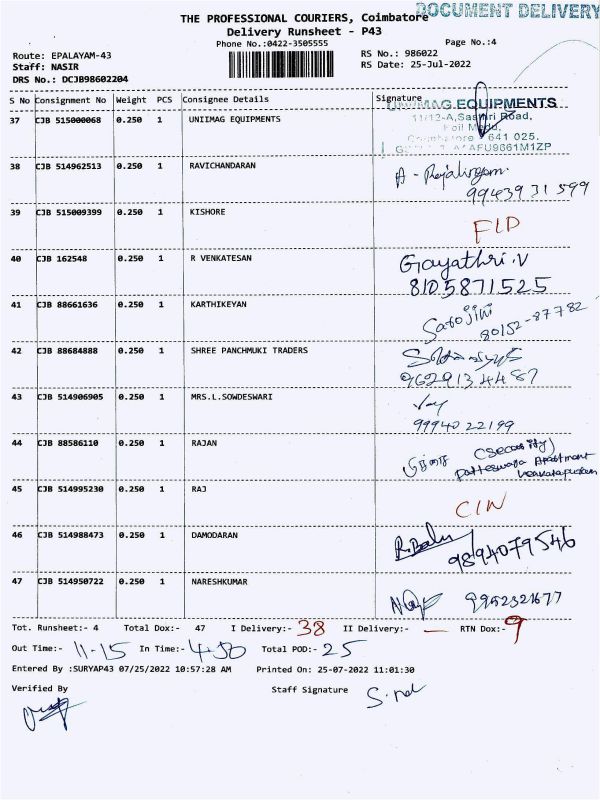 DOCUMENT DELIVERY
THE PROFESSIONAL COURIERS, Coimbatore
Delivery Runsheet - P43
Phone No.:0422-3505555
Page No.:4
Route: EPALAYAM-43
RS No.: 986022
Staff: NASIR
RS Date: 25-Jul-2022
DRS No.: DCJB98602204
S No Consignment No Weight PCS Consignee Details Signature
UNIIMAG EQUIPMENTS
37 CJB 515000068 0.250 1 UNIIMAG EQUIPMENTS
11/12-A, Sastri Road,
641 025.
38 CJB 514962513 0.250 1 RAVICHANDARAN
A - Rajalingam
99439 31 599
39 CJB 515009399 0.250 1 KISHORE
FLD
40 CJB 162548 0.250 1 R VENKATESAN
Gayathri.V
8105871525
41 CJB 88661636 0.250 1 KARTHIKEYAN
Sarojini
80152-87782
42 CJB 88684888 0.250 1 SHREE PANCHMUKI TRADERS
9629134487
43 CJB 514906905 0.250 1 MRS.L.SOWDESWARI
99940 22199
44 CJB 88586110 0.250 1 RAJAN
(Security)
Apartment
45 CJB 514995230 0.250 1 RAJ
CIN
46 CJB 514988473 0.250 1 DAMODARAN
R.Balu
9894079546
47 CJB 514950722 0.250 1 NARESHKUMAR
9952321677
Tot. Runsheet:- 4 Total Dox:- 47 I Delivery:- 38 II Delivery:- — RTN Dox:- 9
Out Time:- 11-15 In Time:- 4-50 Total POD:- 25
Entered By :SURYAP43 07/25/2022 10:57:28 AM Printed On: 25-07-2022 11:01:30
Verified By Staff Signature